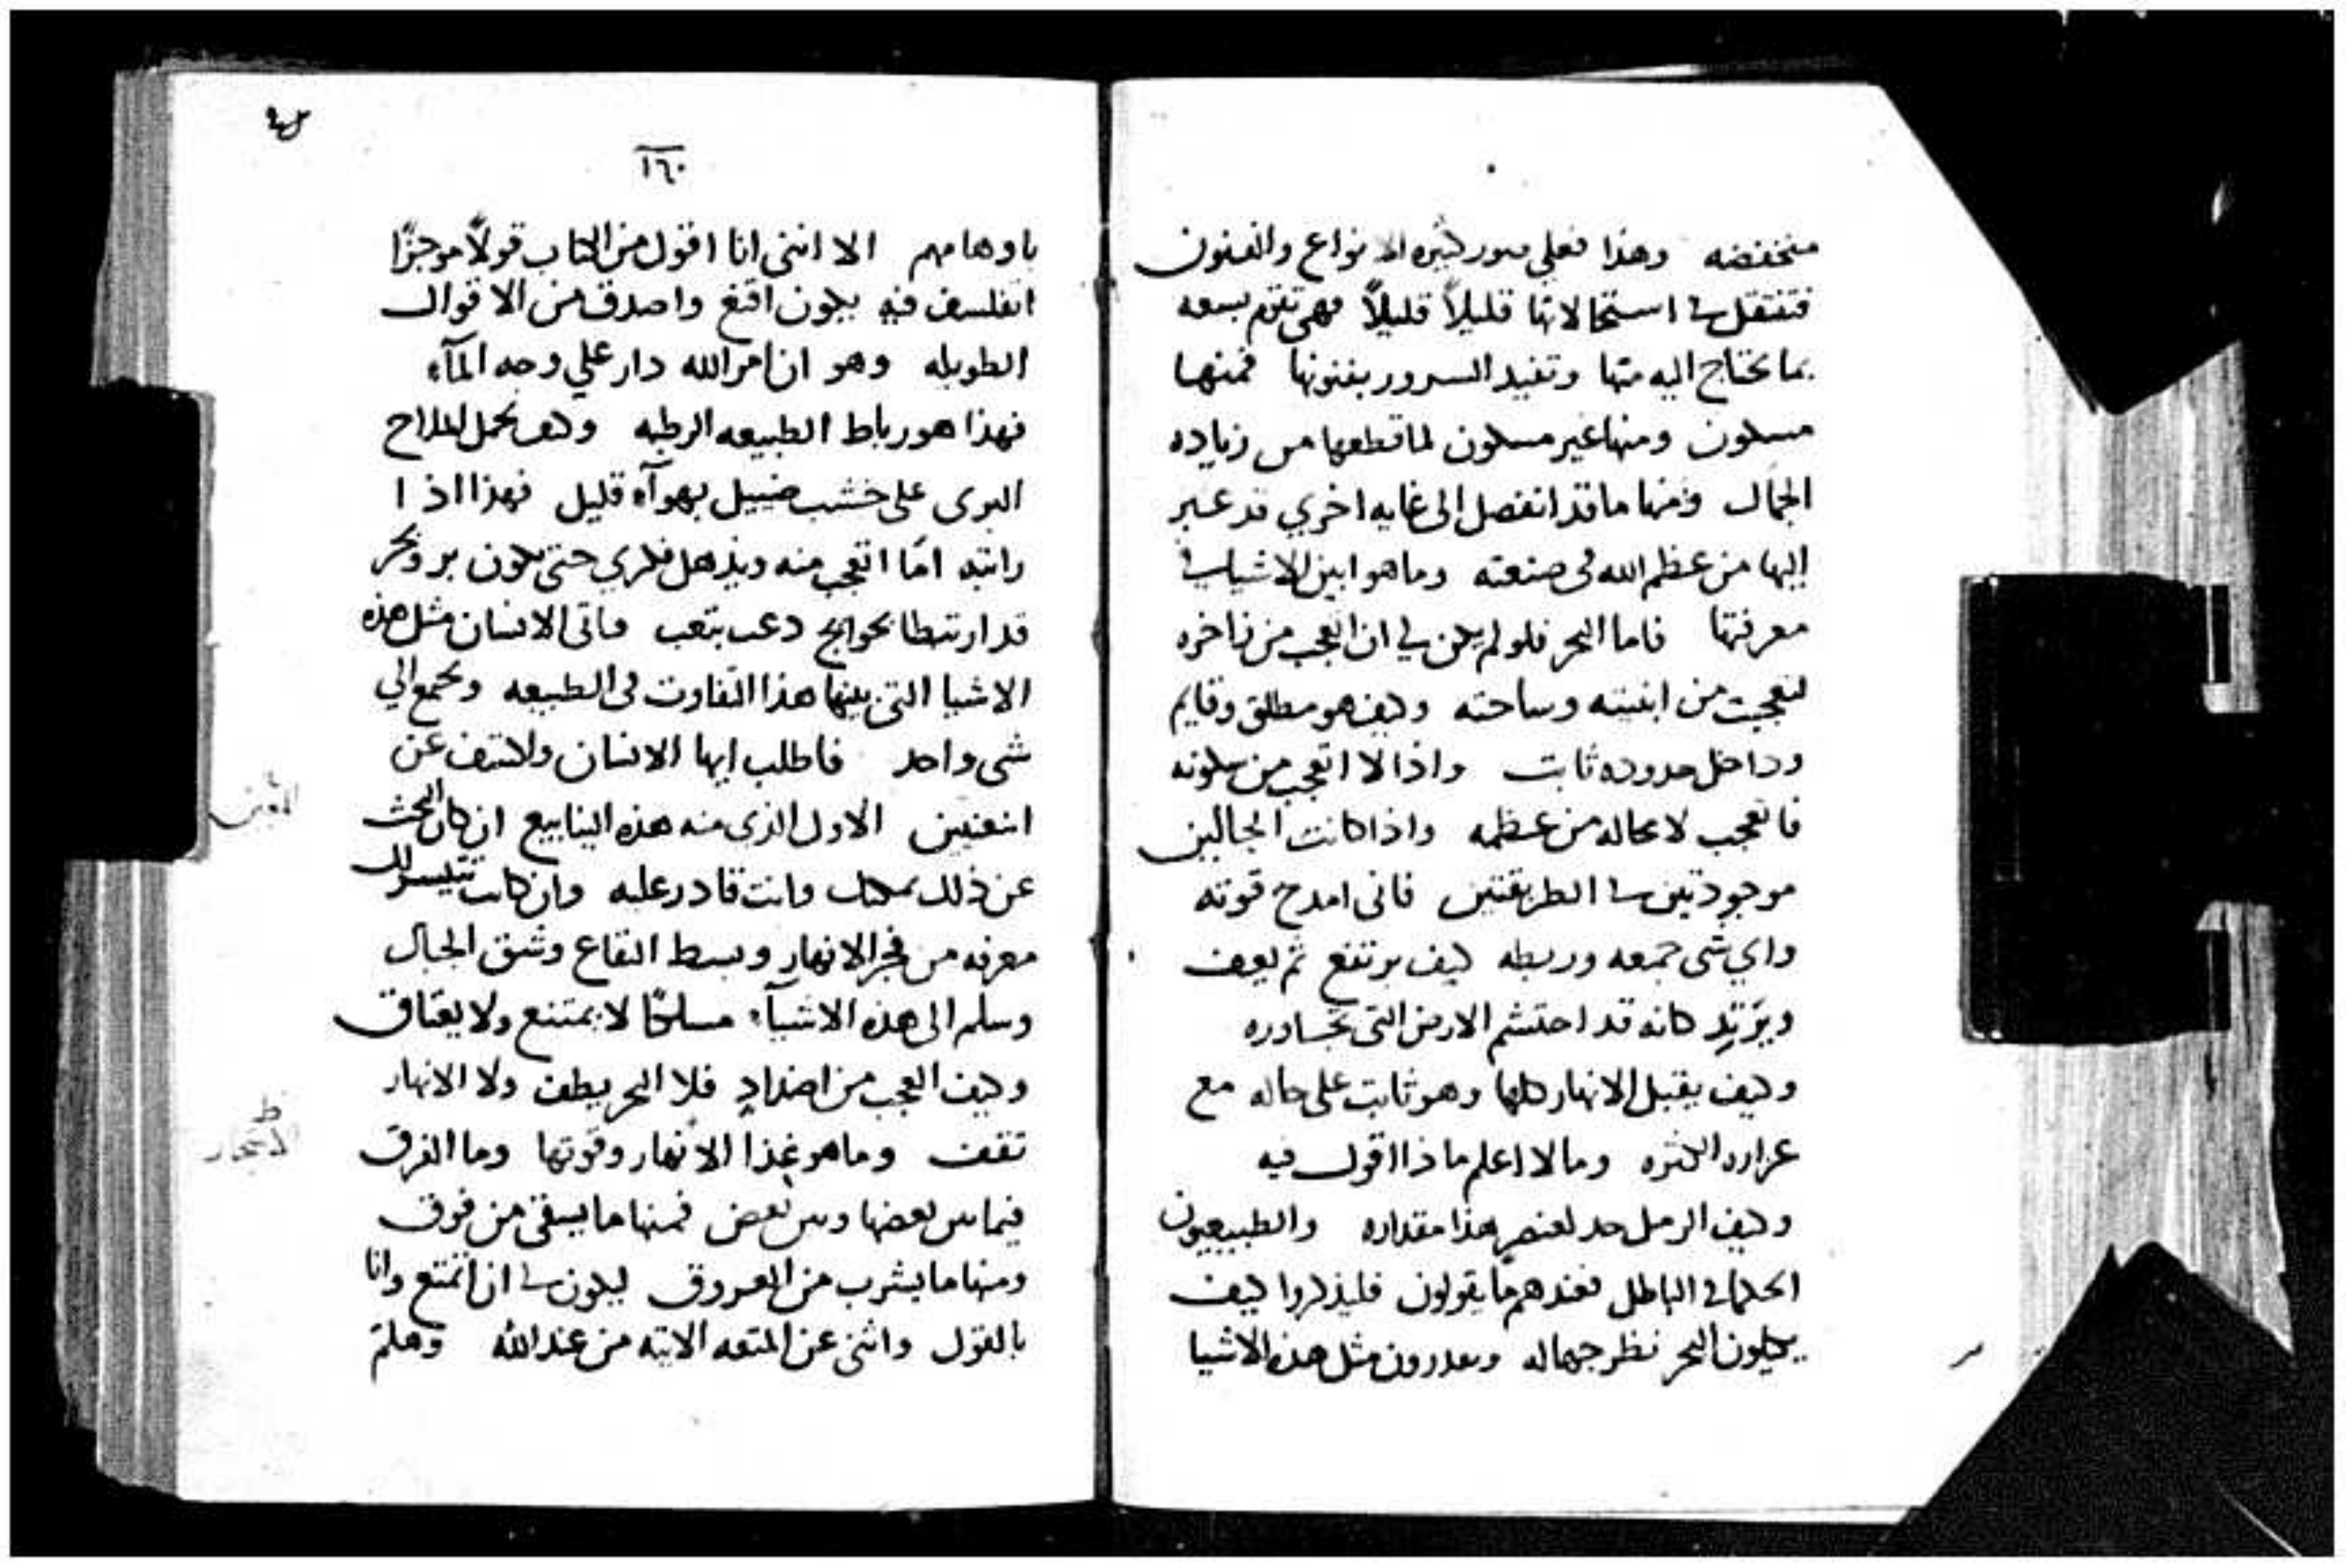 منخفضه وهذا فعلي صور كثيره الانواع والفنون
فتنتقل في استحالاتها قليلاً قليلاً فهي تقوم بسعه
بما يحتاج اليه منها وتفيد السرور بفنونها فمنها
مسكون ومنها غير مسكون لما قطعها من زياده
الجمال ومنها ما قد انفصل الى غايه اخري قد عبر
اليها من عظم الله في صنعته وما هو ابين الاشيا في
معرفتها فاما البحر فلو لم يكن لي ان اتعجب من زاخره
لتعجبت من ابنيته وساحته وكيف هو مطلق وقايم
وداخل حدوده ثابت واذا لا اتعجب من سكونه
فاتعجب لا محاله من عظمه واذا كانت الحالين
موجودتين في الطريقتين فاني امدح قوته
واي شي جمعه وربطه كيف يرتفع ثم يقف
ويرتد كانه قد احتشم الارض التي تجاوره
وكيف يقبل الانهار كلها وهو ثابت على حاله مع
الكثره وما لا اعلم ماذا اقول فيه
وكيف الرمل حد لعنصر هذا مقداره والطبيعيون
الحكما في الباطل فعندهم ما يقولون فليذكروا كيف
يكيلون البحر نظر جهاله ويقدرون مثل هذه الاشيا
١٦٠
باوهامهم الا انني انا اقول من الكتاب قولاً موجزًا
اتفلسف فيه يكون اقنع واصدق من الاقوال
الطويله وهو ان امر الله دار علي وجه المآء
فهذا هو رباط الطبيعه الرطبه وكيف يحمل الملاح
البري على خشب ضييل بهوآء قليل فهذا اذا
رايته امّا اتعجب منه ويذهل فكري حتى يكون بر وبحر
قد ارتبطا بحوايج وياتي الانسان مثل هذه
الاشيا التي بينها هذا التفاوت في الطبيعه ويجمع الي
شي واحد فاطلب ايها الانسان واكشف عن
الاول الذي منه هذه الينابيع ان كان البحث
عن ذلك يمكنك وانت قادر عليه وان كانت تتيسر لك
معرفه من فجر الانهار وبسط البقاع وشق الجبال
وسلم الى هذه الاشيآء مسلكًا لا يمتنع ولا يعتاق
وكيف العجب من اضدادٍ فلا البحر يطف ولا الانهار
تقف وما هو غذا الانهار وقوتها وما الفرق
فيما بين بعضها وبين بعض فمنها ما يسقي من فوق
ومنها ما يشرب من العروق ليكون لي ان اتمتع وانا
بالقول واثني عن المتعه الاتيه من عند الله وهلم